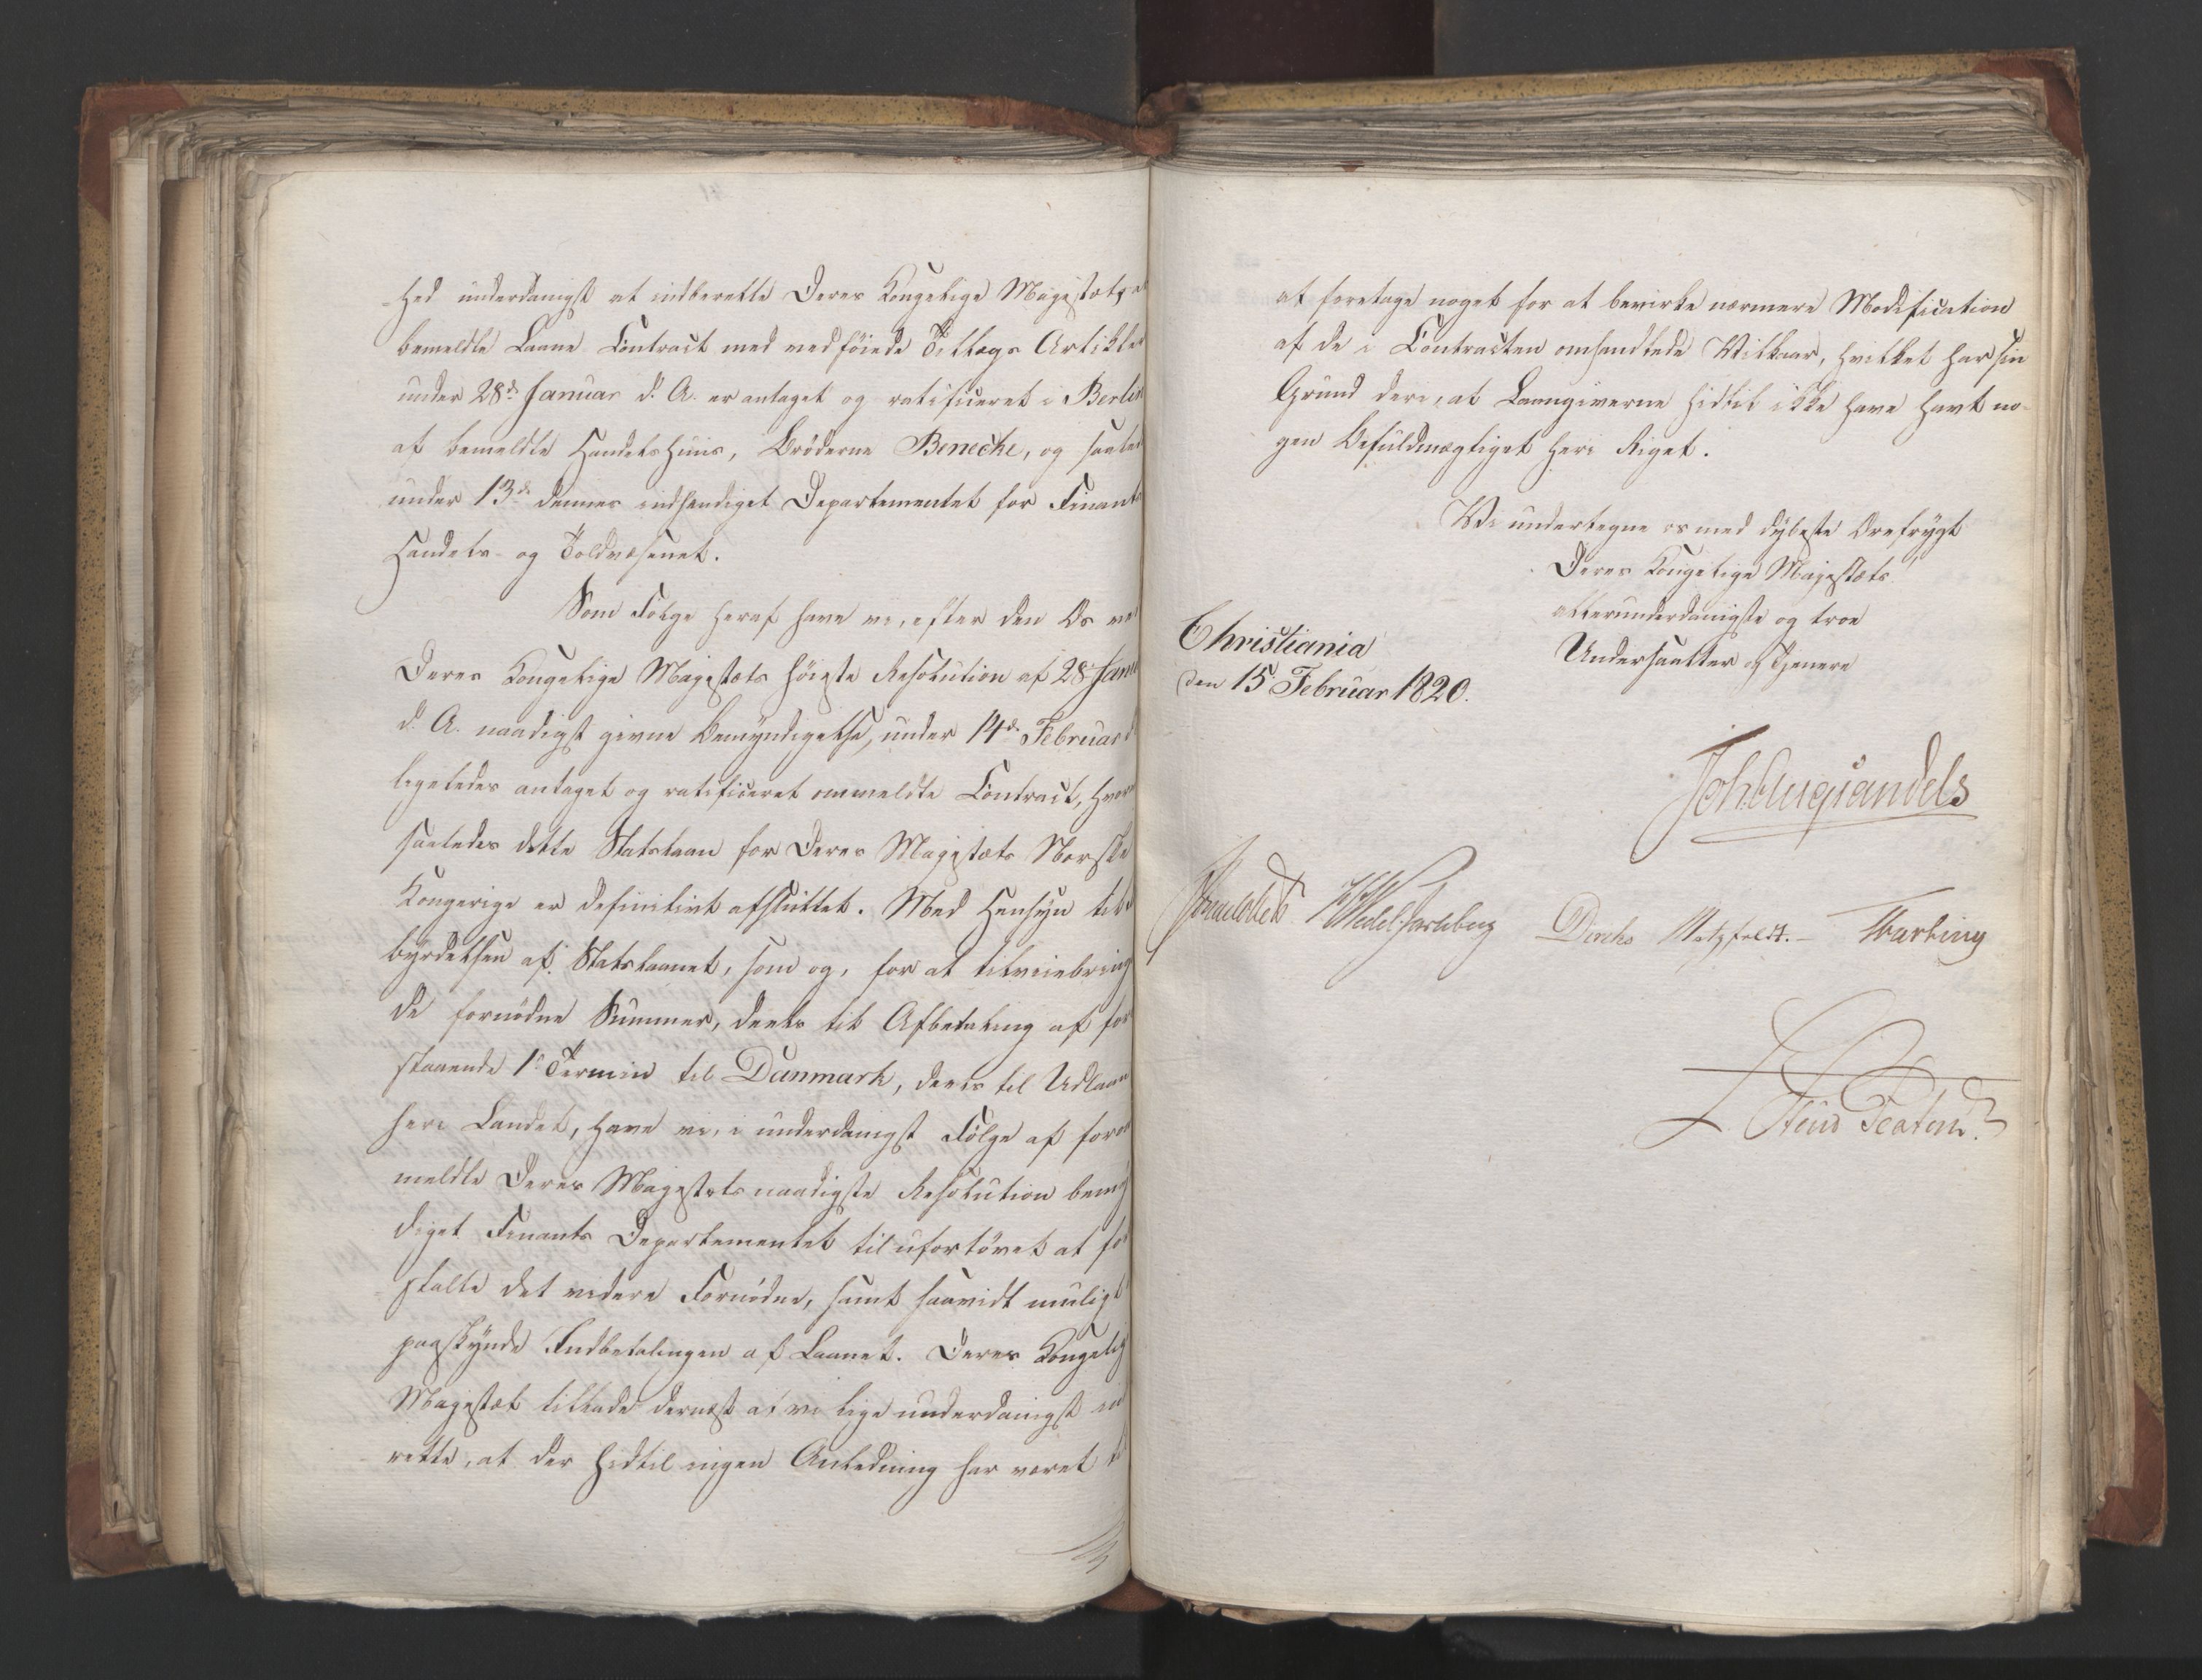 hed underdanigst at indberette Deres Kongelige Majestæt, at
bemeldte Laane Contract med vedföiede Tillægs Artikler
under 28de Januar d. A. er antaget og ratificeret i Berlin
af bemeldte Handelshuus, Brödrene Benecke, og saaledes
under 13de dennes indhændiget Departementet for Finants
Handels- og Toldvæsenet.
Som Fölge heraf have vi, efter den Os ved
Deres Kongelige Majestæts höieste Resolution af 28 Januar
d. A. naadigst givne Bemyndigelse, under 14de Februar d.
ligeledes antaget og ratificeret ommeldte Contract, hvor
saaledes dette Statslaan for Deres Majestæts Norske
Kongerige er definitivt afsluttet. Med Hensyn til
byrdelsen af Statslaanet, som og, for at tilveiebringe
de fornödne Summer, deels til Afbetaling af for
staaende 1e Termin til Danmark, deels til Udlaan
her i Landet, have vi, i underdanigst Fölge af for
meldte Deres Majestæts naadigste Resolution bemyn
diget Finants Departementet til ufortövet at for
stalte det videre Fornödne, samt saavidt muligt
paaskynde Indbetalingen af Laanet. Deres Kongelige
Majestæt tillade dernæst at vi lige underdanigst ind
rette, at der hidtil ingen Anledning har været til
at foretage noget for at bevirke nærmere Modification
af de i Contracten omhandlede Vilkaar, hvilket har sin
Grund deri, at Laangiverne hidtil ikke have havt no-
gen Befuldmægtiget her i Riget.
Vi undertegne os med dybeste Ærefrygt
Deres Kongelige Majestæts
allerunderdanigste og troe
Undersaatter og Tjenere
Christiania
den 15 Februar 1820.
Joh. Aug. Sandels
Sommerhielm Wedel Jarlsberg Diriks Motzfeldt. Fasting